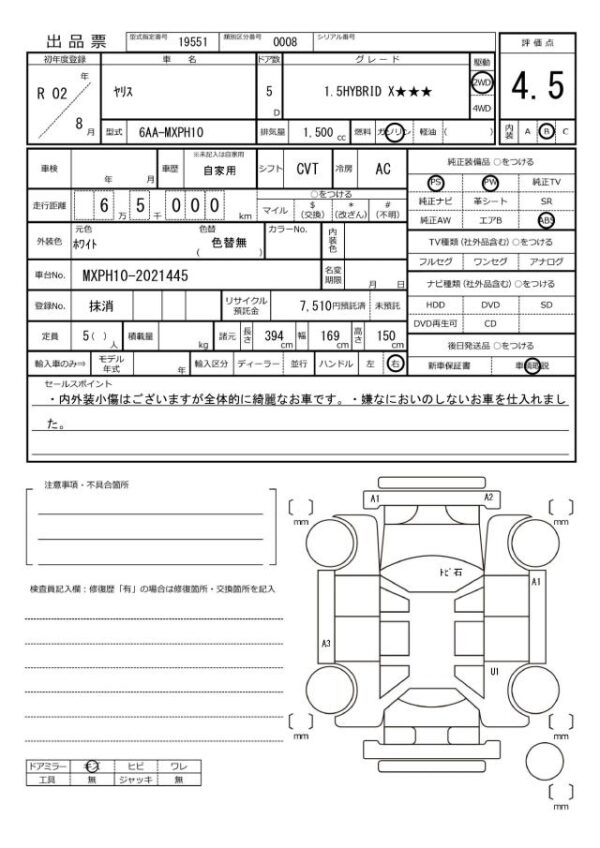 出品票 型式指定番号 19551 類別区分番号 0008 シリアル番号
評価点
初年度登録 車名 ドア数 グレード 駆動
R 02 年 ヤリス 5 D 1.5HYBRID X★★★ 2WD 4WD
4.5
8 月 型式 6AA-MXPH10 排気量 1,500 cc 燃料 ガソリン 軽油 ( )
内装 A B C
車検 年 月 車歴 ※未記入は自家用 自家用 シフト CVT 冷房 AC
純正装備品 ○をつける
PS PW 純正TV
走行距離 6 万 5 千 0 0 0 km
○をつける
マイル $ (交換) * (改ざん) # (不明)
純正ナビ 革シート SR
純正AW エアB ABS
外装色 元色 ホワイト 色替 色替無 ( ) カラーNo. 内装色
TV種類 (社外品含む) ○をつける
フルセグ ワンセグ アナログ
車台No. MXPH10-2021445 名変期限 月 日
ナビ種類 (社外品含む) ○をつける
登録No. 抹消 リサイクル預託金 7,510円預託済 未預託
HDD DVD SD
DVD再生可 CD
定員 5 ( ) 人 積載量 kg 諸元 長さ 394 cm 幅 169 cm 高さ 150 cm
後日発送品 ○をつける
輸入車のみ⇒ モデル年式 年 輸入区分 ディーラー 並行 ハンドル 左 右
新車保証書 車輌取説
セールスポイント
・内外装小傷はございますが全体的に綺麗なお車です。・嫌なにおいのしないお車を仕入れまし
た。
注意事項・不具合箇所
検査員記入欄：修復歴「有」の場合は修復箇所・交換箇所を記入
A1 A2
mm mm
トビ石
A1
A3
U1
mm mm
mm
ドアミラー キズ ヒビ ワレ
工具 無 ジャッキ 無